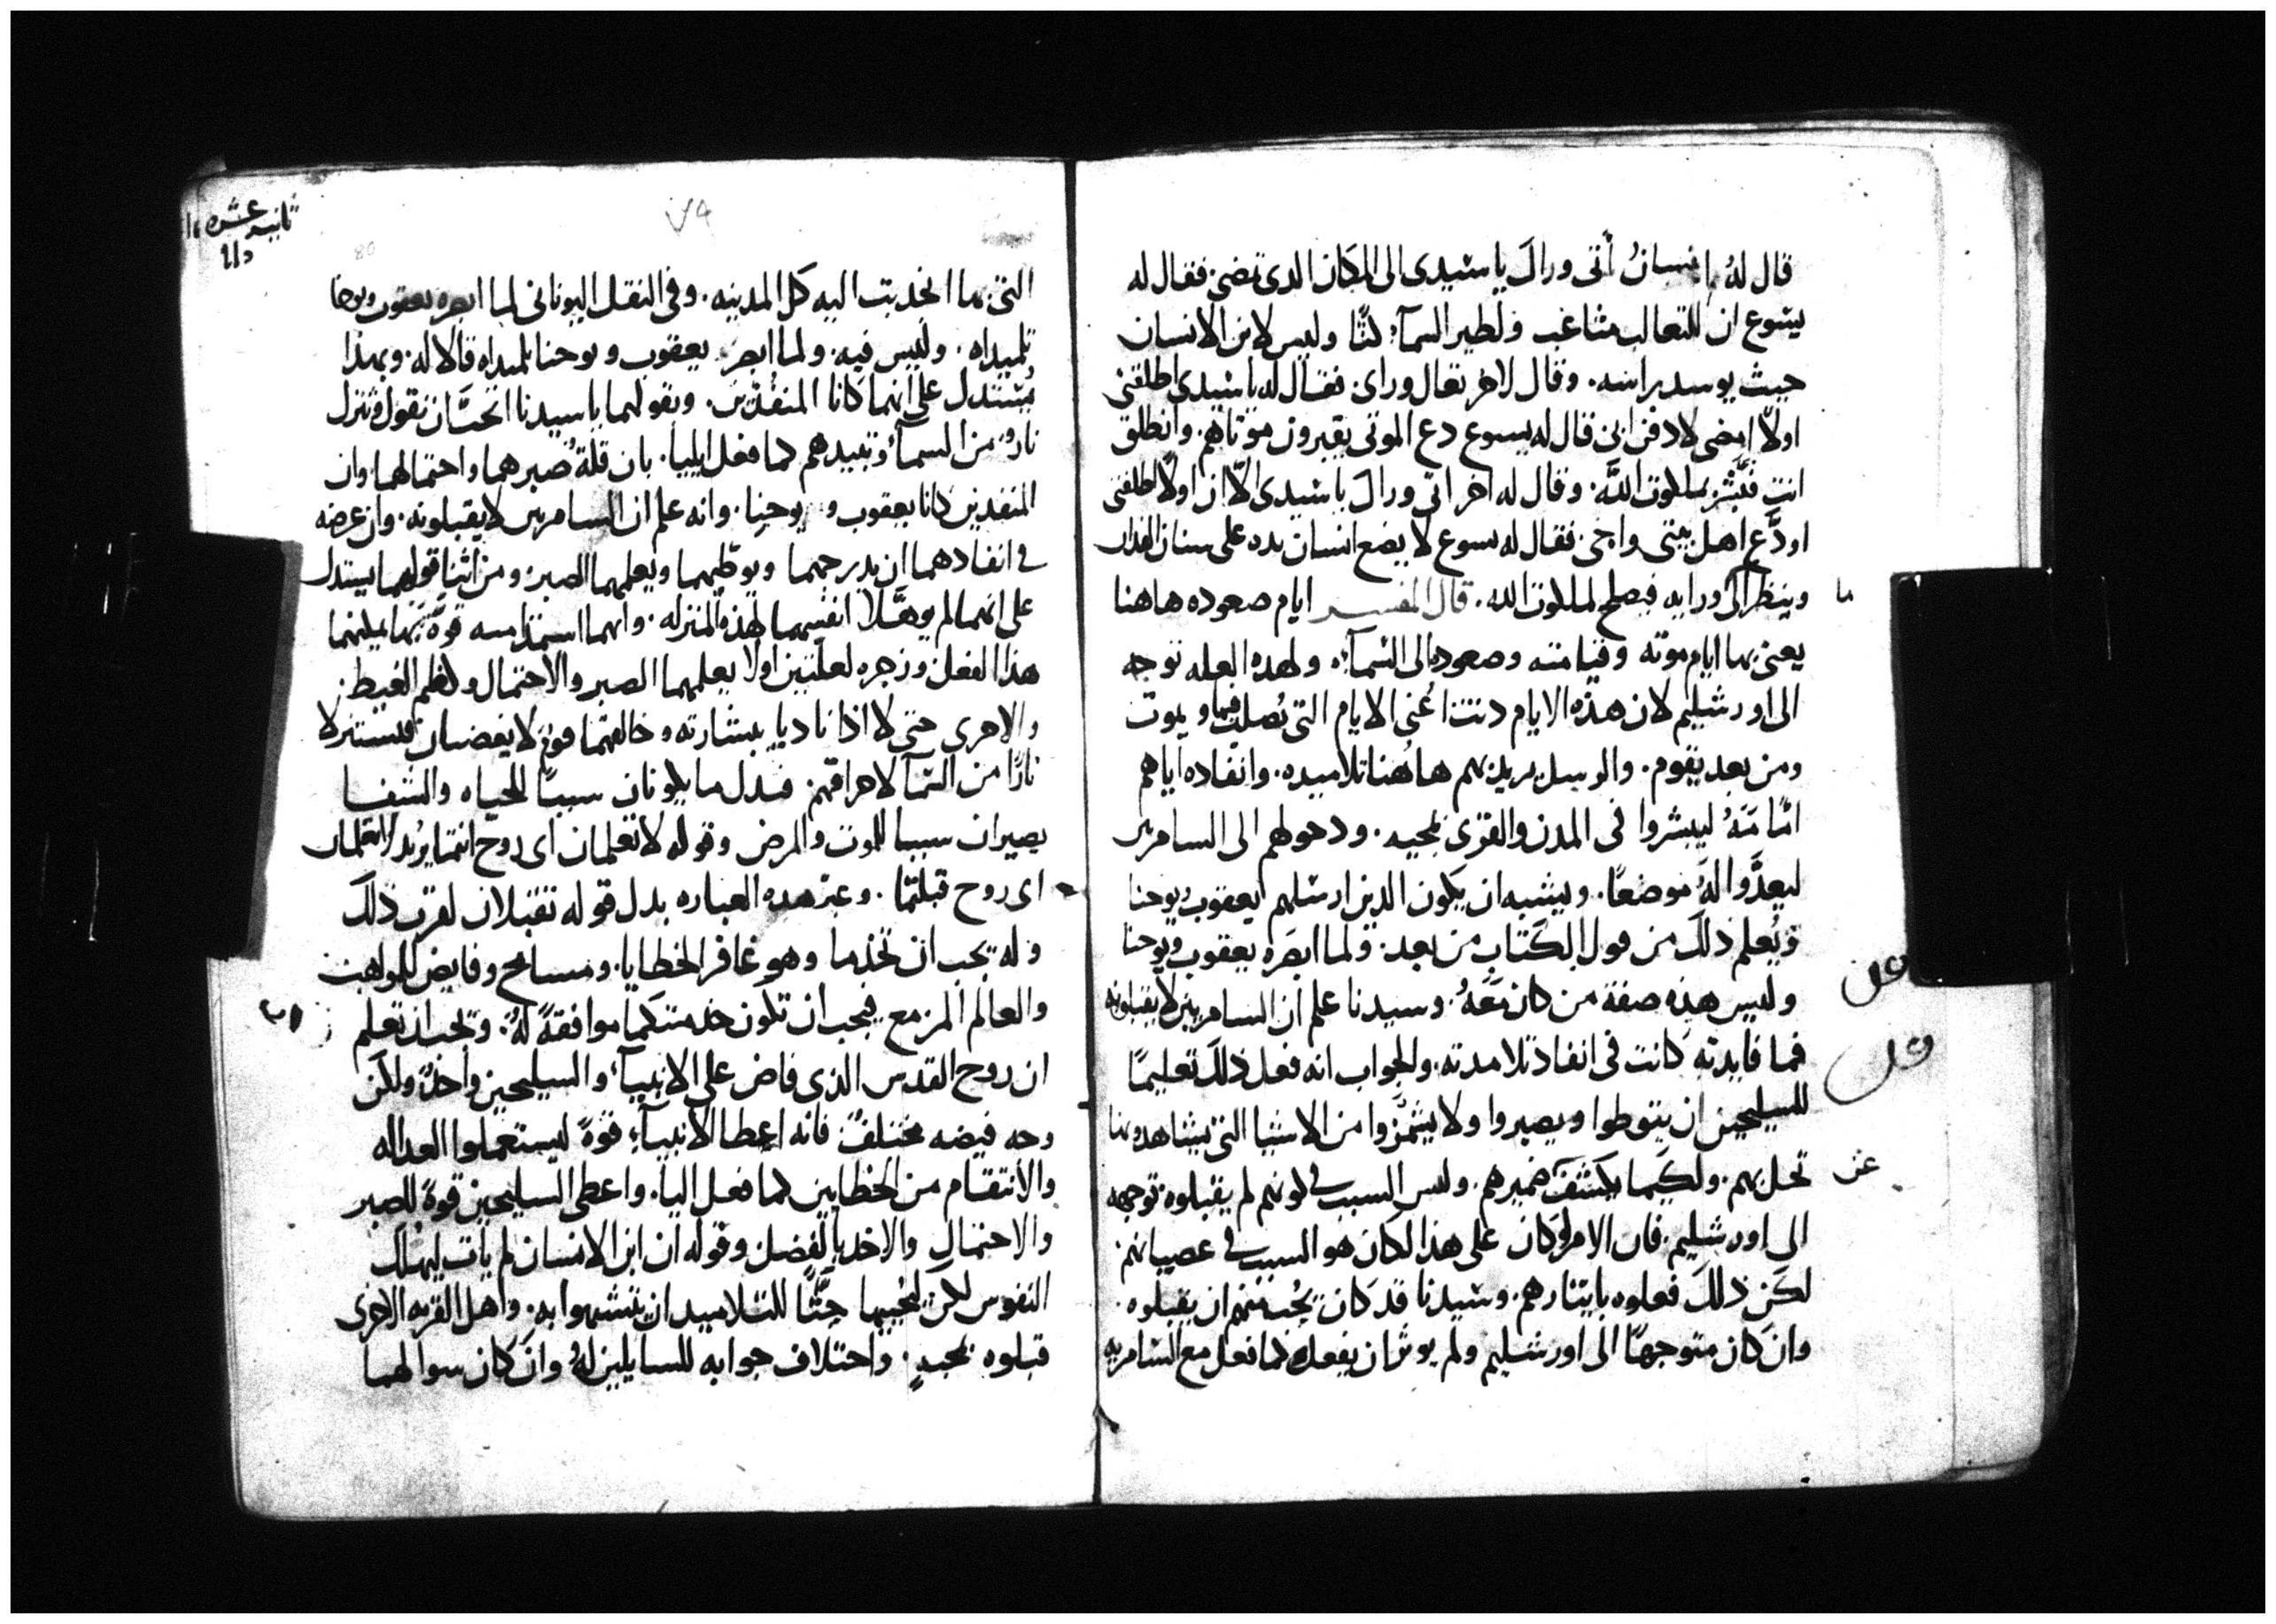 قال لهُ انسانُ أتى وراك ياسيدى الى المكان الدى تمضى. فقال له
يسوع ان للتعالب مثاغب ولطير السمآء كنًّا وليس لابن الانسان
حيث يوسد راسه. وقال لاخر تعال وراى فقال له ياسيدى اطلقنى
اولاً امضى لادفن ابى قال له يسوع دع الموتى يقبرون موتاهم. وانطلق
انت فبَشّر بملكوت اللَّه. وقال له اخر اتى وراك ياسيدى الّا ان اولاً اطلقنى
اودَّع اهل بيتى واجى. فقال له يسوع لا يضع انسان يده على سنان الفدان
وينظر الى ورايه فيصلح لملكوت الله. قال المفسر ايام صعوده هاهنا
ما
يعنى بها ايام موته وقيامته وصعوده الى السمآء. ولهده العله توجه
الى اورشليم لان هذه الايام دنت اعُنى الايام التى يُصلب فيها ويموت
ومن بعد يقوم. والرسل يريد بهم هاهُنا تلاميده. وانفاده اياهم
امَّامَهُ ليبشروا فى المدن والقرى بمجيه. ودخولهم الى السامريين
ليعدَّوا لهَ موضعًا. ويشبه ان يكون الدين ارسلهم يعقوب ويوحنا
ويُعلم ذلك من قول الكتاب من بعد. ولما ابصَره يعقوب ويوحنا
وليس هذه صفة من كان مَعَهُ. وسيدنا علم ان السامريين لا يقبلونه
فما فايدته كانت فى انفاد تلامدته. والجواب انه فعل ذلك تعليمًا
للسليحين ان يتوطوا ويصبروا ولا يشمَّزوا من الاشيا التى يشاهدونها
تحل بهم. ولكيما يكشف ضميرهم. وليس السبب فى كونهم لم يقبلوه توجهه
عن
الى اورشليم. فان الامر لو كان على هذا لكان هو السبب فى عصيانهم
لكن ذلك فعلوه بايثارهم. وسيدنا قد كان يُحب منهم ان يقبلوه.
وان كان متوجهًا الى اورشليم ولم يوثر ان يفعل كما فعل مع السامريه
ثانيه عشره
٧٩
80
التى بها انجدبت اليه كل المدينه. وفى النقل اليونانى لما ابصره يعقوب ويوحنا
تلميداه. وليس فيه. ولما ابصر يعقوب ويوحنا تلميداه قالا له. وبهذا
يُستدل على انهما كانا المنفدين. وبقولهما ياسيدنا اتحبَّ ان نقول وتنزل
نار من السمآء وتبيدهم كما فعل ايليا. بان قلّة صبرهما واحتمالهما وان
المنفدين كانا يعقوب ويوحنا. وانه علم ان السامريين لا يقبلونه. وان غرضه
فى انفادهما ان يدرجهما ويوطيهما ويعلمهما الصبر. ومن اثنا قولهما يستدل
على انهما لم يوهَّلا انفسهما لهذه المنزله. وانهما استمدا منه قوة بها يمكنهما
هذا الفعل. وزجره لعلّتين اولا يعلمهما الصبر والاحتمال ولكظم الغيط.
والاخرى حتى لا اذا ناديا ببشارته وخالفهما قوم لا يغضبان فيستنزلا
نارًا من السّما لاحراقهم. فبدل ما يكونان سببًا للحياه والشفا
يصيران سببا للموت والمرض وقوله لا تعلمان اى روح انتما يريد لا تعلمان
اى روح قبلتما. وعبر هده العباره بدل قوله تقبلان لقرب ذلك
وله يجب ان تخدما وهو غافر الخطايا. ومسامح وفايض المواهب
والعالم المزمع فيجب ان تكون خدمتكما موافقةً لهُ. ويجب ان تعلم
ان روح القدس الذى فاض على الانبيآء والسليحين واحدٌ ولكن
وجه فيضه مختلفٌ فانه اعطا الانبيآء قوةً ليستعملوا العداله
والانتقام من الخطايين كما فعل اليا. واعطى السليحين قوةً للصبر
والاحتمال والاخد بالفضل وقوله ان ابن الانسان لم يات ليهلك
النفوس لكن ليُحييها حثًّا للتلاميد ان يتشبهوا به. واهل القريه الاخرى
قبلوه بمجدٍ. واختلاف جوابه للسايلين لهُ وان كان سوالهما